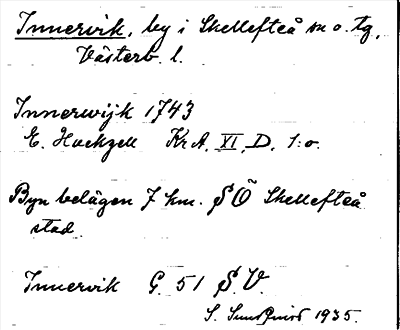 Innervik, by i Skellefteå sn o. tg,
Västerb. l.
Innerwijk 1743
E. Hackzell KrA, XI, D, 1:o.
Byn belägen 7 km. S Ö Skellefteå
stad.
Innervik G. 51 S.V.
S. 1935.